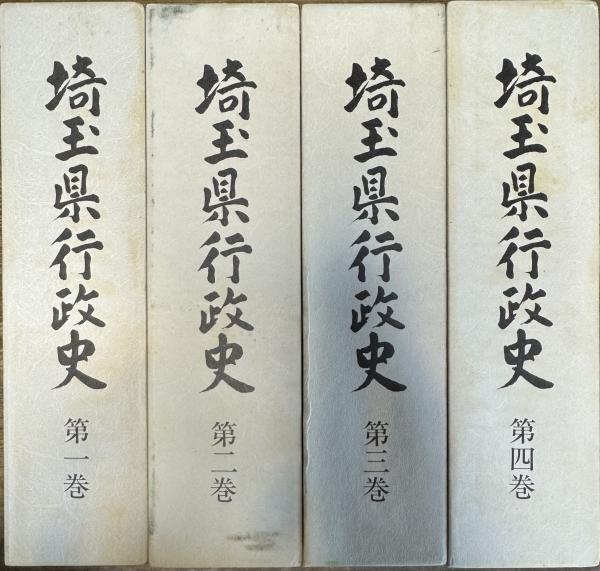 埼玉県行政史 第一巻
埼玉県行政史 第二巻
埼玉県行政史 第三巻
埼玉県行政史 第四巻